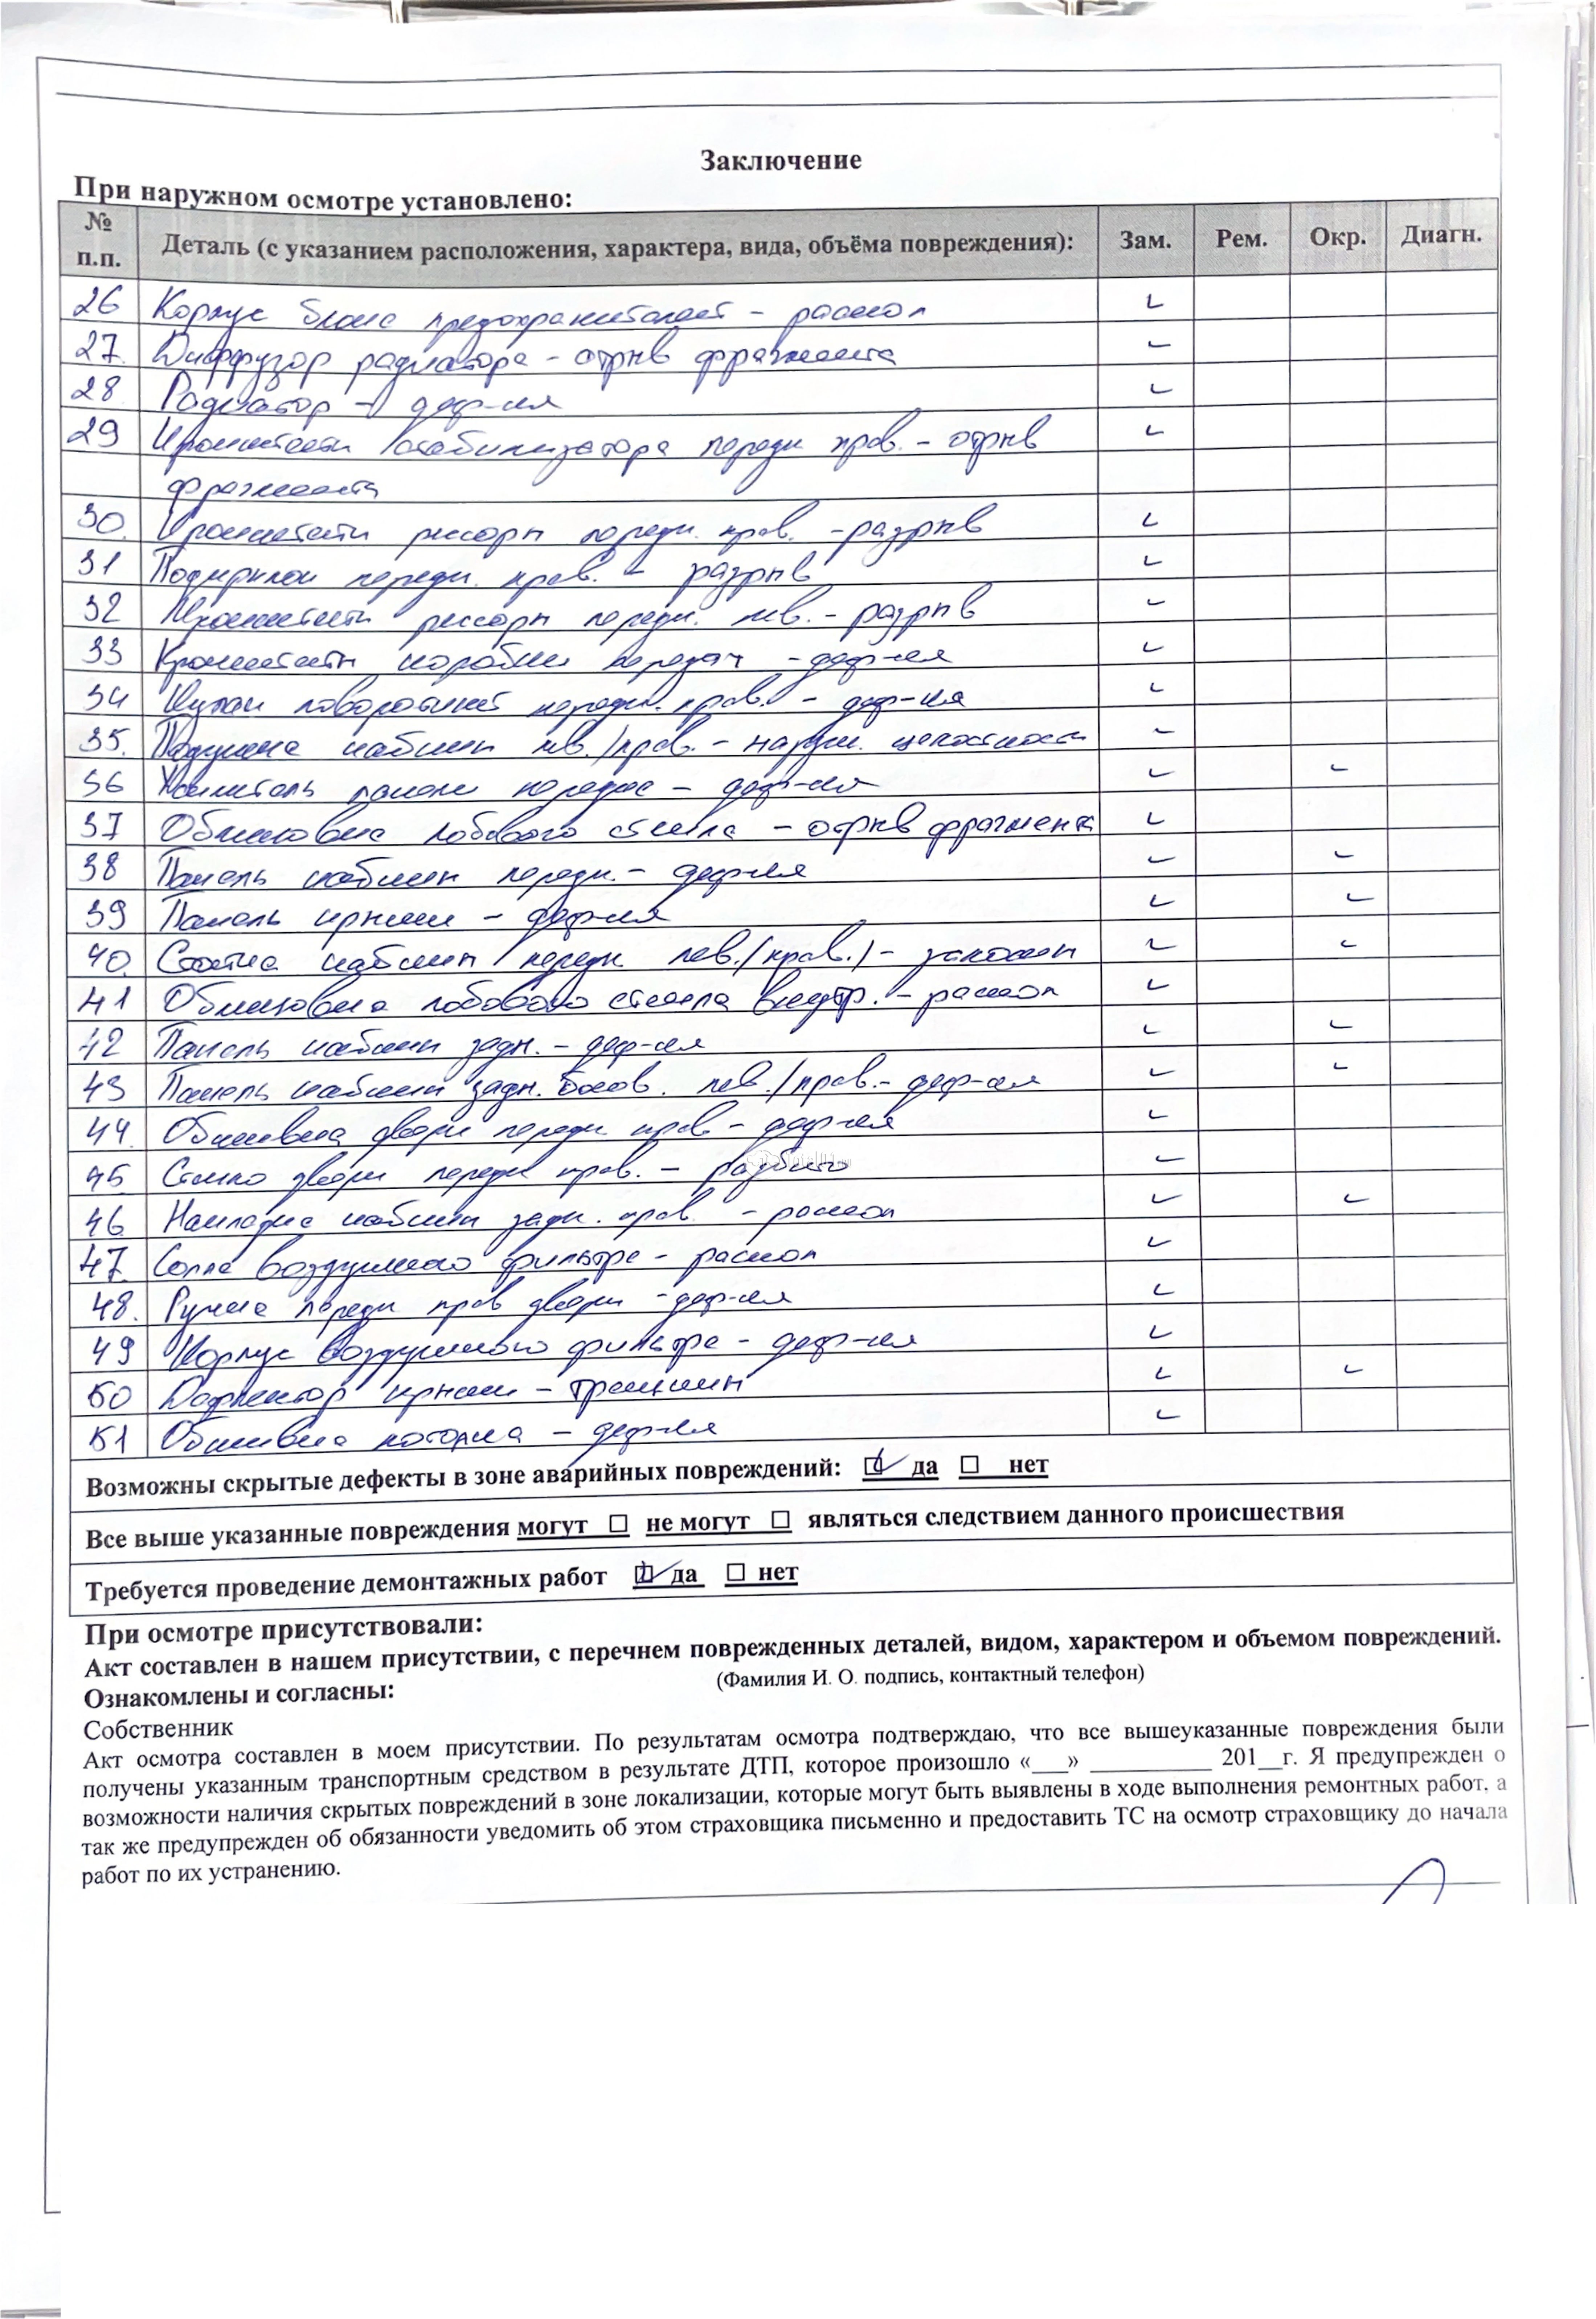 Заключение
При наружном осмотре установлено:
№ п.п. Деталь (с указанием расположения, характера, вида, объёма повреждения): Зам. Рем. Окр. Диагн.
26 Корпус блока предохранителей - раскол ✓
27. Диффузор радиатора - отрыв фрагмента ✓
28 Радиатор - деф-ия ✓
29 Кронштейн стабилизатора передн прав. - отрыв ✓
фрагмента
30. Кронштейн рессоры передн. прав. - разрыв ✓
31 Подкрылок передн. прав. - разрыв ✓
32 Кронштейн рессоры передн. лев. - разрыв ✓
33 Кронштейн коробки передач - деф-ия ✓
34 Кулак поворотный передн. прав. - деф-ия ✓
35. Подушка кабины лев./прав. - наруш. целостности ✓
36 Усилитель панели передка - деф-ия ✓ ✓
37 Облицовка лобового стекла - отрыв фрагмента ✓
38 Панель кабины передн. - деф-ия ✓ ✓
39 Панель крыши - деф-ия ✓ ✓
40. Стойка кабины передн лев./прав./ - заломы ✓ ✓
41 Облицовка лобового стекла внутр. - раскол ✓
42 Панель кабины задн. - деф-ия ✓ ✓
43 Панель кабины задн. боков. лев./прав. - деф-ия ✓ ✓
44. Обшивка двери передн прав - деф-ия ✓
45 Стекло двери передн прав. - разбито ✓
46 Накладка кабины задн. прав. - раскол ✓ ✓
47. Сопло воздушного фильтра - раскол ✓
48. Ручка передн прав двери - деф-ия ✓
49 Корпус воздушного фильтра - деф-ия ✓
50 Дефлектор крыши - трещины ✓ ✓
51 Обшивка потолка - деф-ия ✓
Возможны скрытые дефекты в зоне аварийных повреждений: ☑ да ☐ нет
Все выше указанные повреждения могут ☐ не могут ☐ являться следствием данного происшествия
Требуется проведение демонтажных работ ☑ да ☐ нет
При осмотре присутствовали:
Акт составлен в нашем присутствии, с перечнем поврежденных деталей, видом, характером и объемом повреждений.
Ознакомлены и согласны: (Фамилия И. О. подпись, контактный телефон)
Собственник
Акт осмотра составлен в моем присутствии. По результатам осмотра подтверждаю, что все вышеуказанные повреждения были
получены указанным транспортным средством в результате ДТП, которое произошло «___» __________ 201__г. Я предупрежден о
возможности наличия скрытых повреждений в зоне локализации, которые могут быть выявлены в ходе выполнения ремонтных работ, а
так же предупрежден об обязанности уведомить об этом страховщика письменно и предоставить ТС на осмотр страховщику до начала
работ по их устранению.